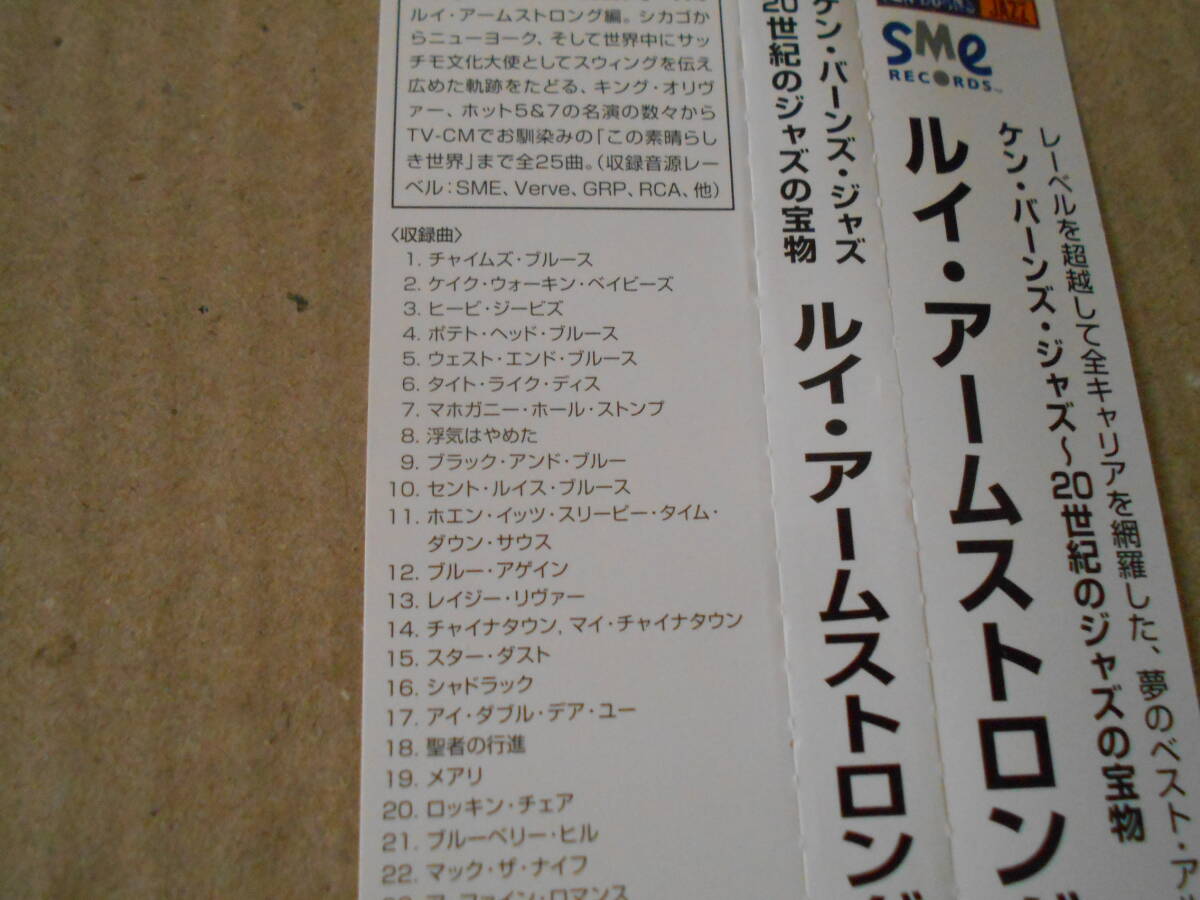 ルイ・アームストロング編。シカゴか
らニューヨーク、そして世界中にサッ
チモ文化大使としてスウィングを伝え
広めた軌跡をたどる、キング・オリヴ
ァー、ホット5&7の名演の数々から
TV-CMでお馴染みの「この素晴らし
き世界」まで全25曲。(収録音源レー
ベル:SME、Verve、GRP、RCA、他)
〈収録曲〉
1. チャイムズ・ブルース
2. ケイク・ウォーキン・ベイビーズ
3. ヒービ・ジービズ
4. ポテト・ヘッド・ブルース
5. ウェスト・エンド・ブルース
6. タイト・ライク・ディス
7. マホガニー・ホール・ストンプ
8. 浮気はやめた
9. ブラック・アンド・ブルー
10. セント・ルイス・ブルース
11. ホエン・イッツ・スリーピー・タイム・
ダウン・サウス
12. ブルー・アゲイン
13. レイジー・リヴァー
14. チャイナタウン, マイ・チャイナタウン
15. スター・ダスト
16. シャドラック
17. アイ・ダブル・デア・ユー
18. 聖者の行進
19. メアリ
20. ロッキン・チェア
21. ブルーベリー・ヒル
22. マック・ザ・ナイフ
ア・ファイン・ロマンス
ケン・バーンズ・ジャズ
20世紀のジャズの宝物
ルイ・アームストロング
JAZZ
SMe
RECORDS
レーベルを超越して全キャリアを網羅した、夢のベスト・ア
ケン・バーンズ・ジャズ〜20世紀のジャズの宝物
ルイ・アームストロング